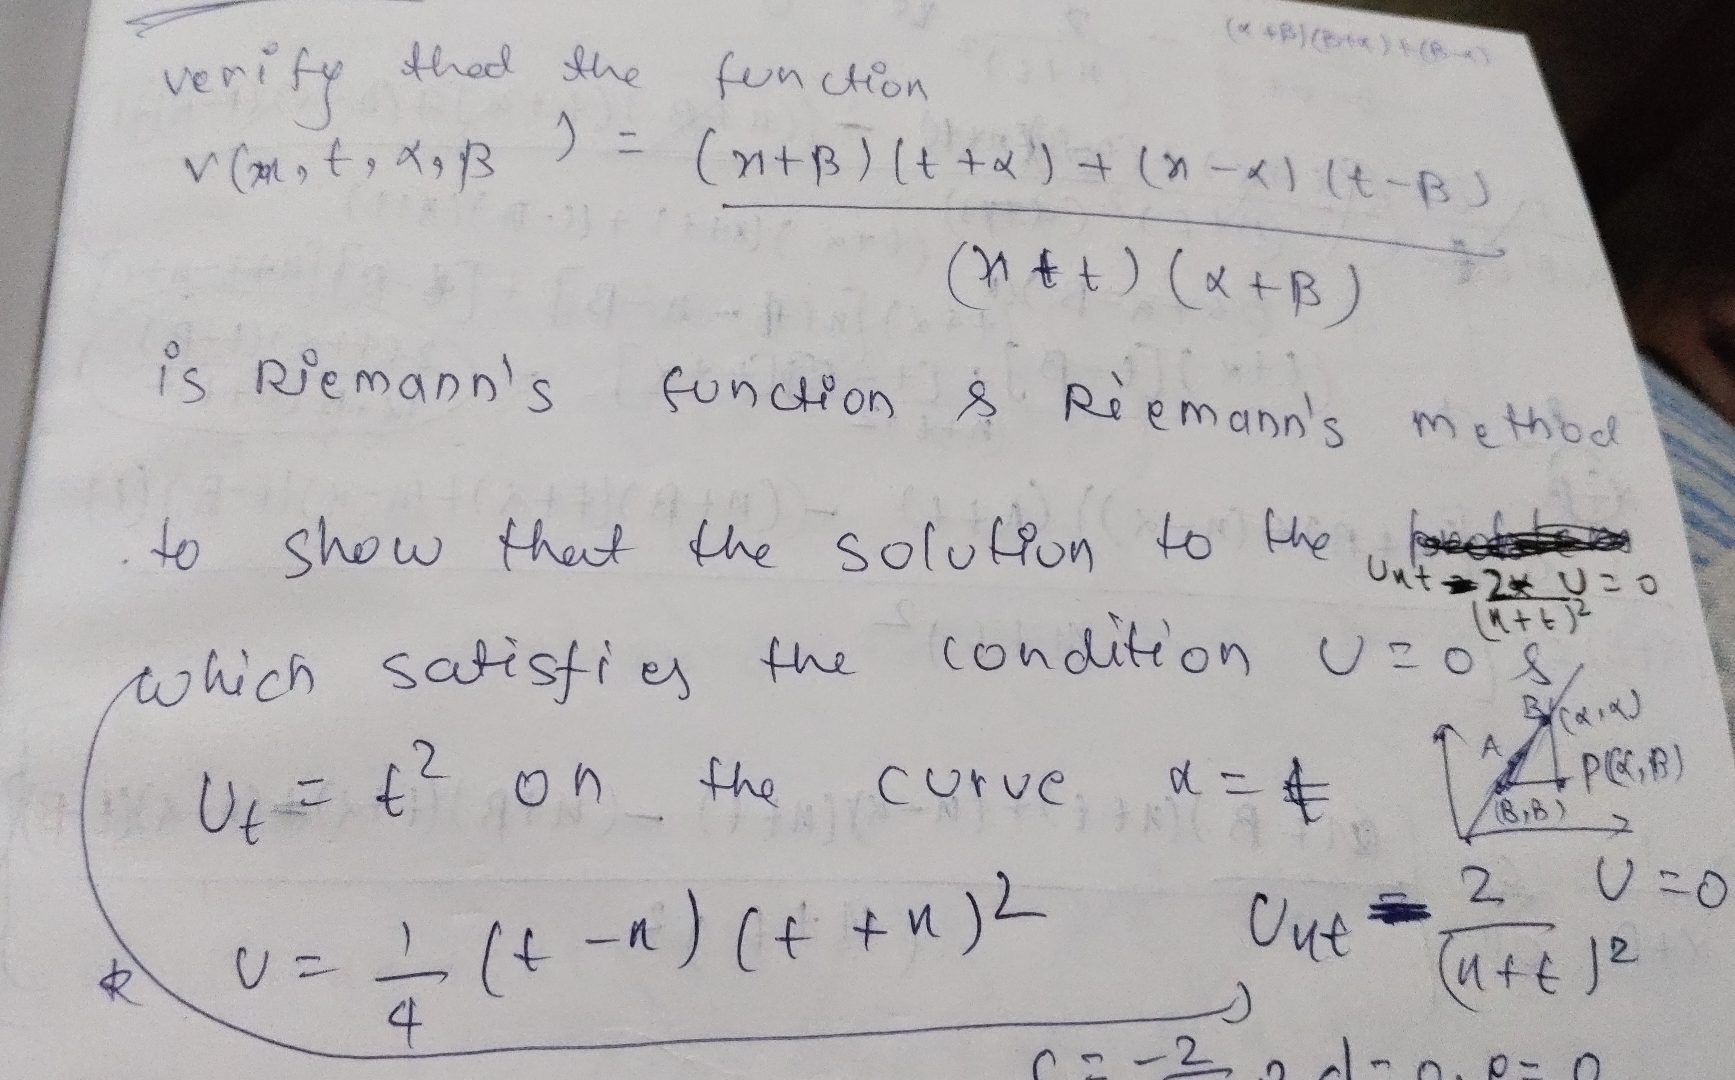 (α+β)(β+α)+(β-α)
verify thad the function
v(x, t, α, β) = (x+β)(t+α)+(x-α)(t-β)
(x+t)(α+β)
is Riemann's function & Riemann's method
to show that the solution to the
Uxt - 2 U = 0
(x+t)²
which satisfies the condition U = 0 &
Ut = t² on the curve x = t
B (α,α)
A
P(α,β)
(β,β)
U = 1/4 (t-x)(t+x)²
Uxt - 2 U = 0
(x+t)²
C = -2, d=0, e=0